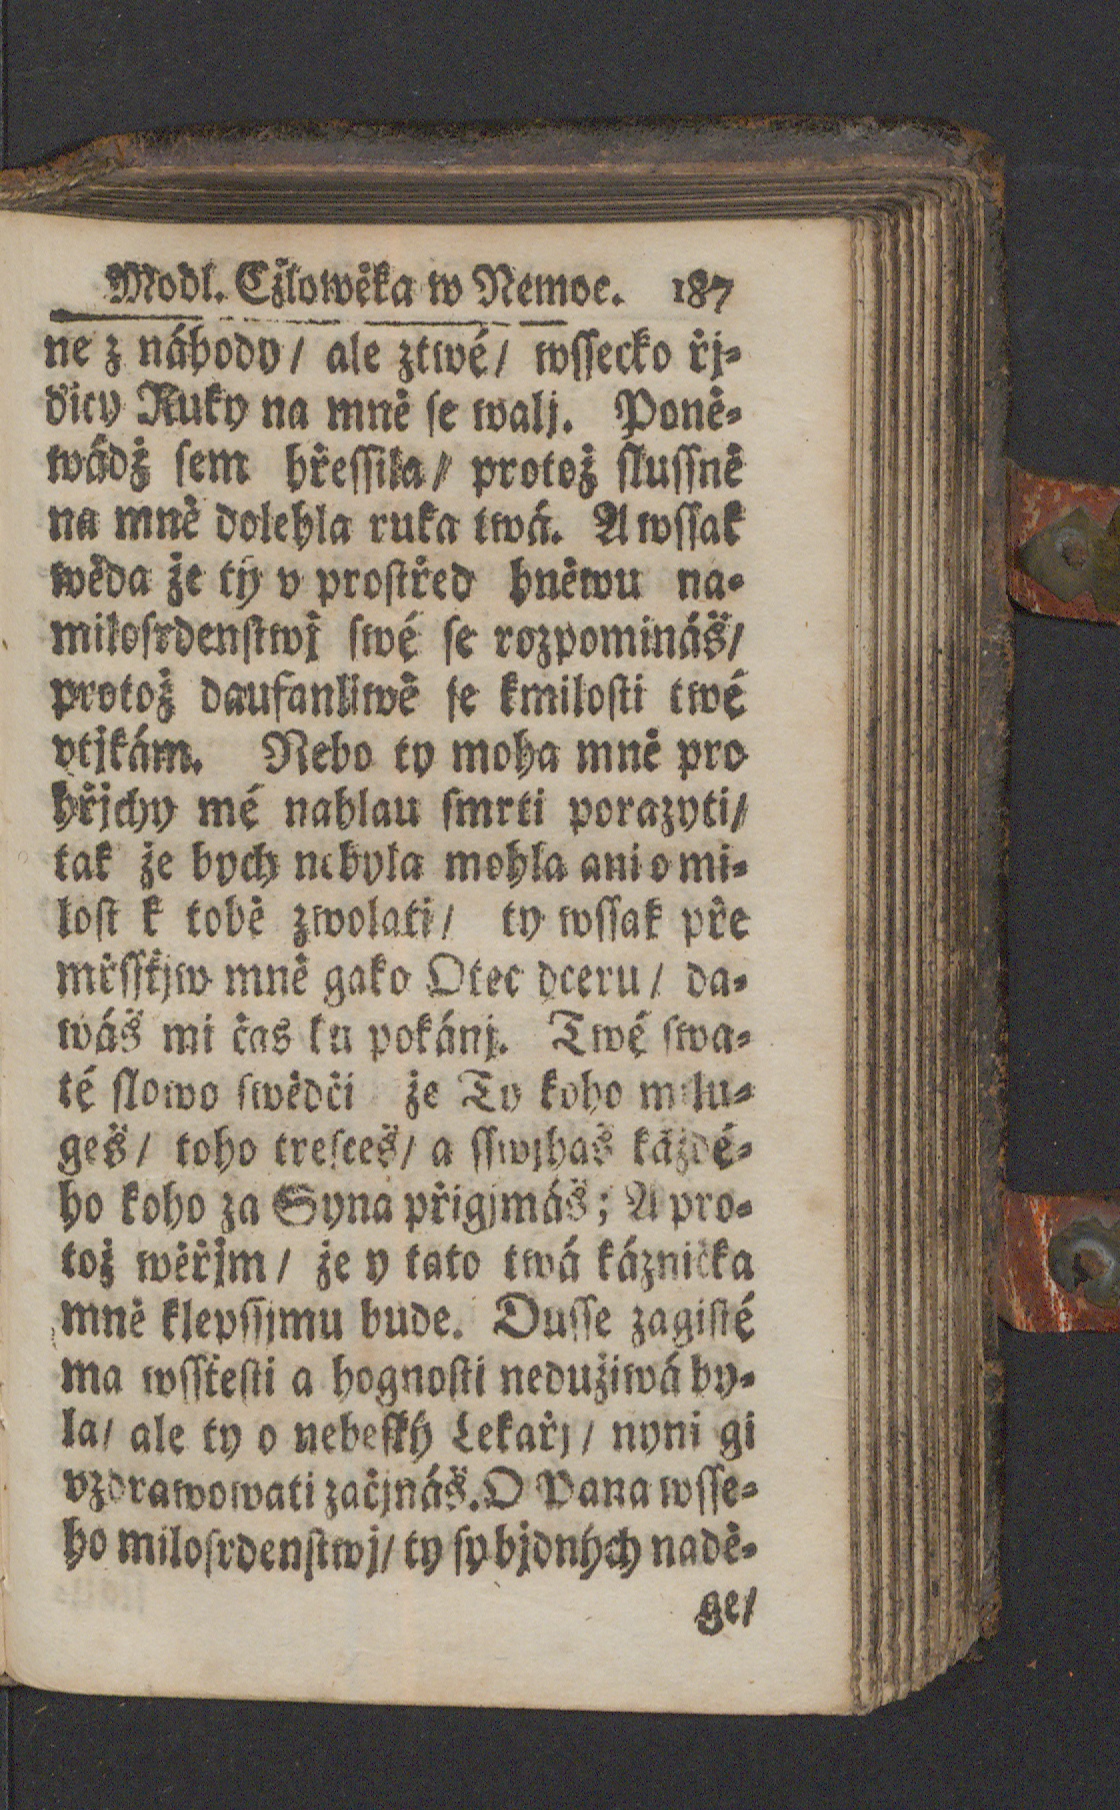 Modl. Cžlowěka w Nemoc. 187
ne z náhody/ ale ztwé/ wſſecko řj⸗
dicy Ruky na mně ſe walj. Poně⸗
wádž ſem hřeſſila/ protož ſluſſně
na mně dolehla ruka twá. A wſſak
wěda že ty v proſtřed hněwu na⸗
miloſrdenſtwj ſwé ſe rozpomináš/
protož daufanliwě ſe kmiloſti twé
vtjkám. Nebo ty moha mně pro
hřjchy mé nahlau ſmrti porazyti/
tak že bych nebyla mohla ani o mi⸗
loſt k tobě zwolati/ ty wſſak pře
mrſſſtjw mně gako Otec dceru/ da⸗
wáš mi čas ku pokánj. Twé ſwa⸗
té ſlowo ſwědči že Ty koho milu⸗
geš/ toho treſceš/ a ſſwjhaš každé⸗
ho koho za Syna přigjmáš; A pro⸗
tož wěřjm/ že y tato twá káznička
mně klepſſjmu bude. Duſſe zagiſté
ma wſſteſti a hognoſti nedužiwá by⸗
la/ ale ty o nebeſký Lekařj/ nyni gi
vzdrawowati začjnáš. O Pana wſſe⸗
ho miloſrdenſtwj/ ty ſy bjdných nadě⸗
ge/